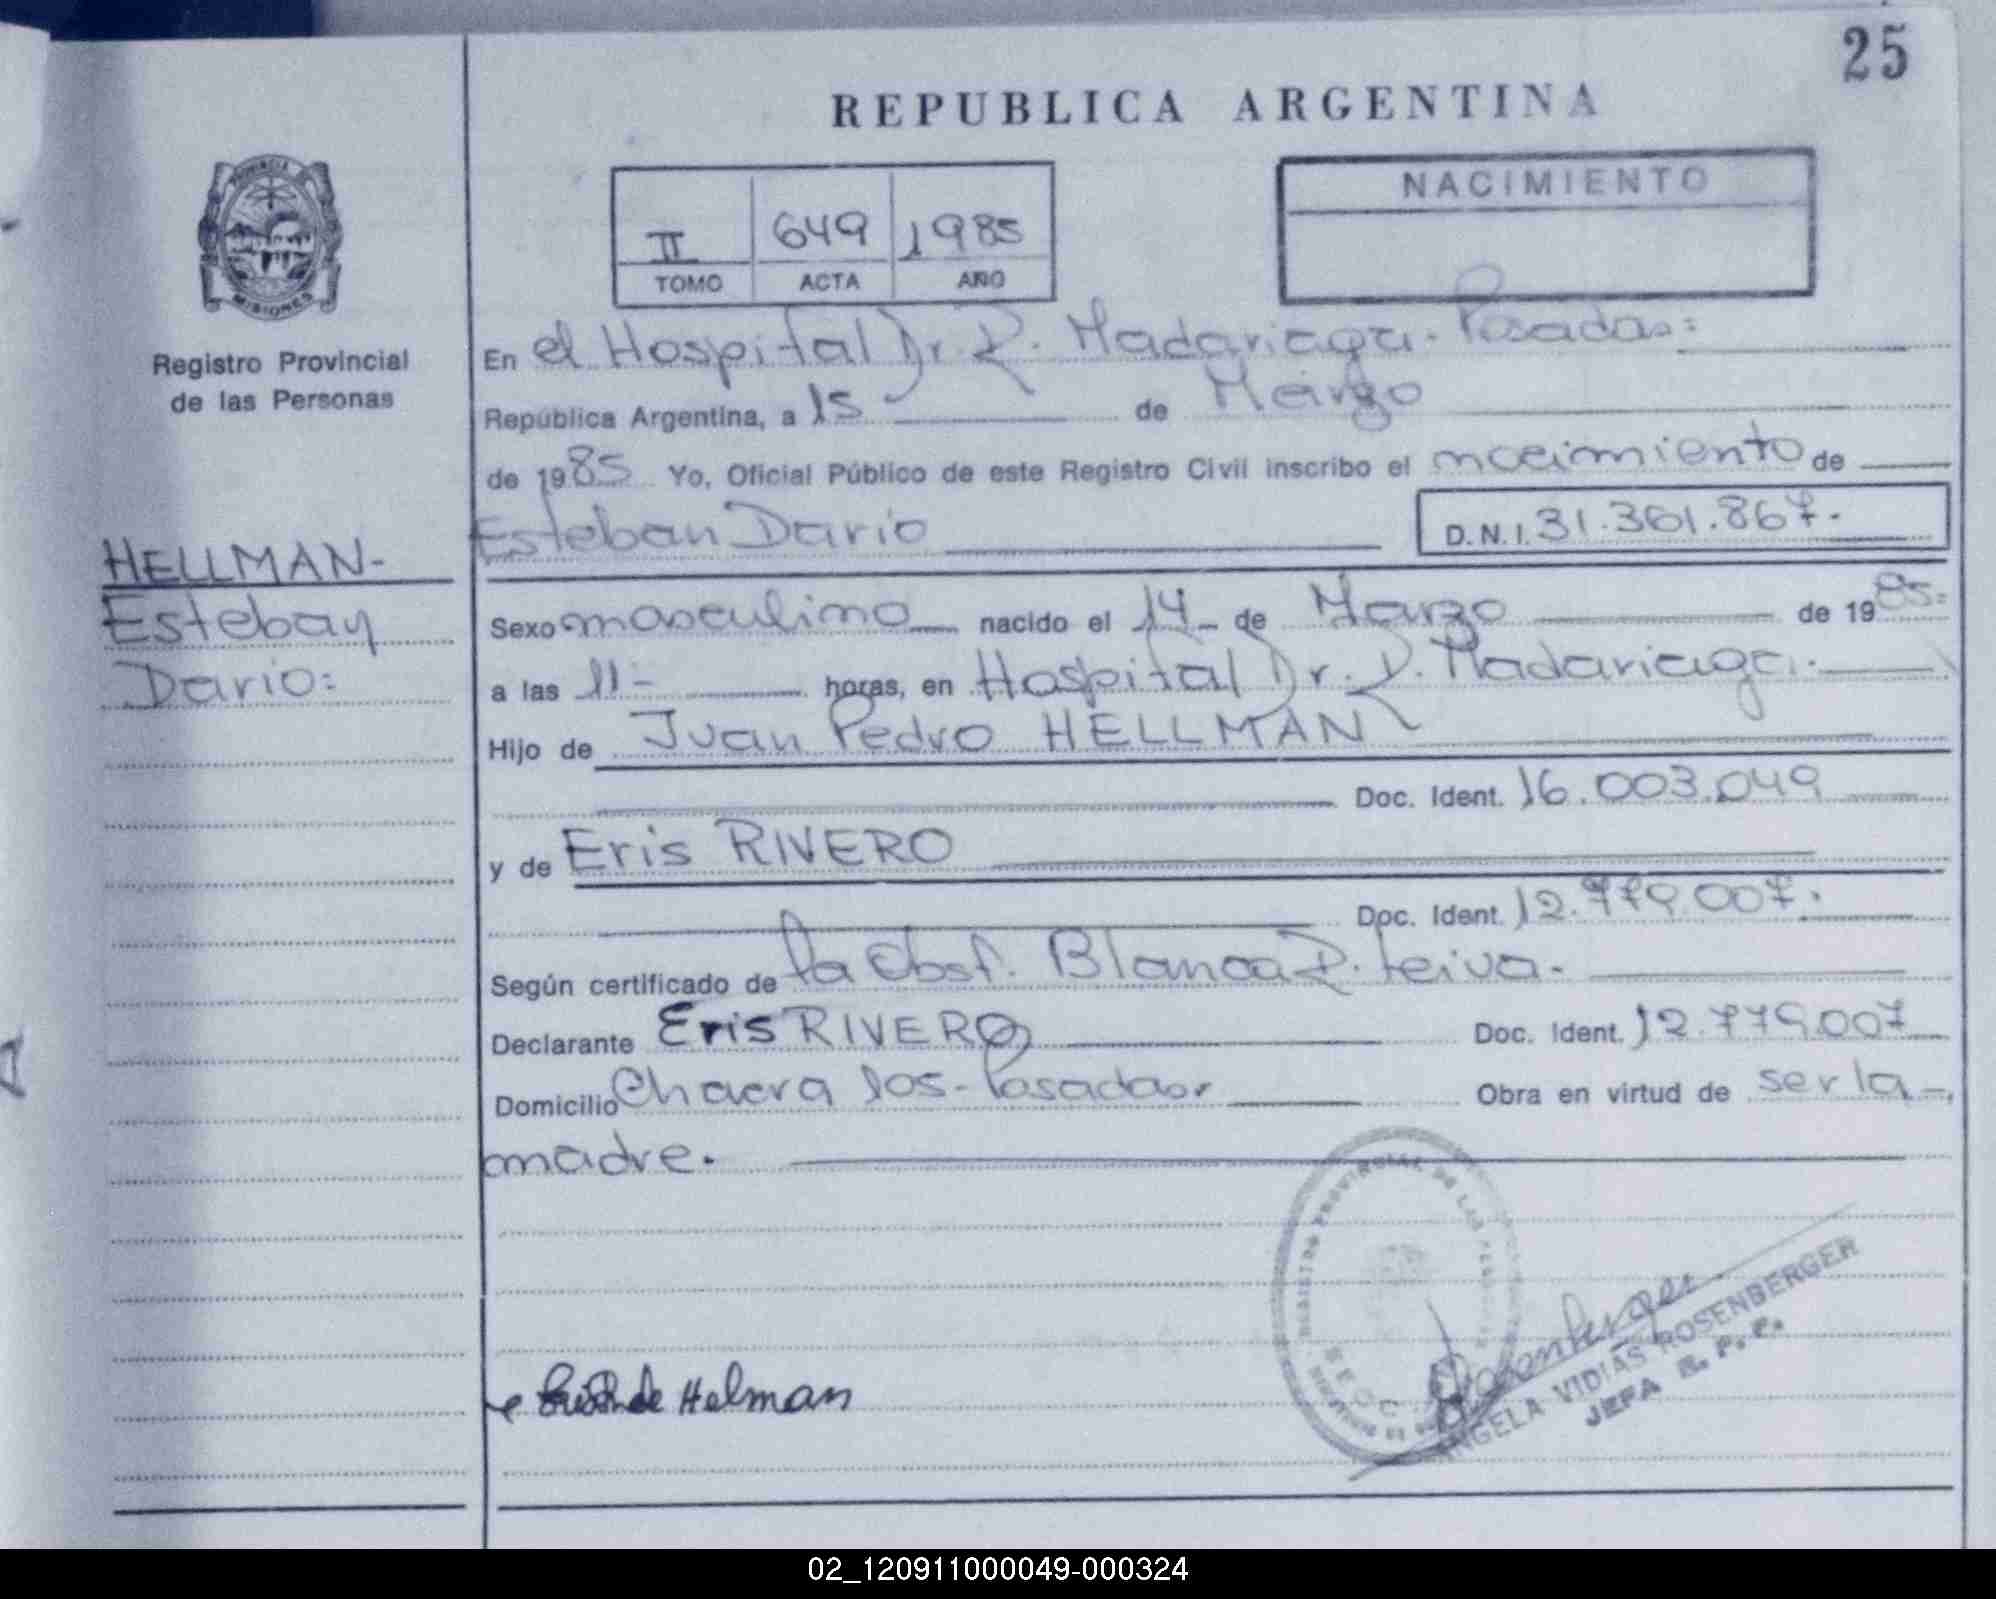 25
REPUBLICA ARGENTINA
PROVINCIA DE MISIONES
Registro Provincial
de las Personas
II 649 1985
TOMO ACTA AÑO
NACIMIENTO
En el Hospital Dr. R. Madariaga - Posadas=
República Argentina, a 15 de Marzo
de 1985 Yo, Oficial Público de este Registro Civil inscribo el nacimiento de
Esteban Dario
D.N.I. 31.361.867.
HELLMAN-
Esteban
Dario=
Sexo masculino nacido el 14 de Marzo de 1985=
a las 11- horas, en Hospital Dr. R. Madariaga.
Hijo de Juan Pedro HELLMAN
Doc. Ident. 16.003.049
y de Eris RIVERO
Doc. Ident. 12.779.007.
Según certificado de la Obst. Blanca R. Leiva.
Declarante Eris RIVERO Doc. Ident. 12.779.007
Domicilio Chacra 105 - Posadas. Obra en virtud de ser la
madre.
REGISTRO PROVINCIAL DE LAS PERSONAS
de Helman
Rosenberger
ANGELA VIDIAS ROSENBERGER
JEFA R. P. P.
02_120911000049-000324